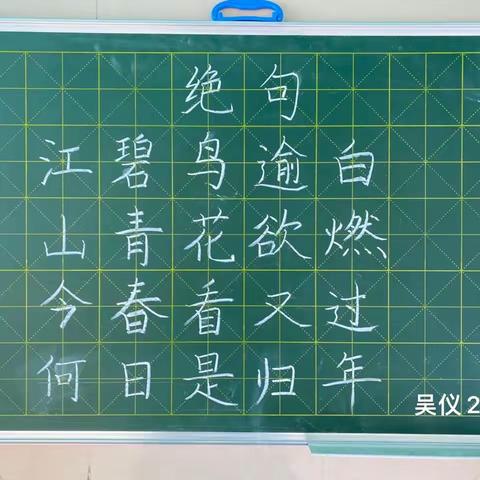 绝句
江碧鸟逾白
山青花欲燃
今春看又过
何日是归年
吴仪 2